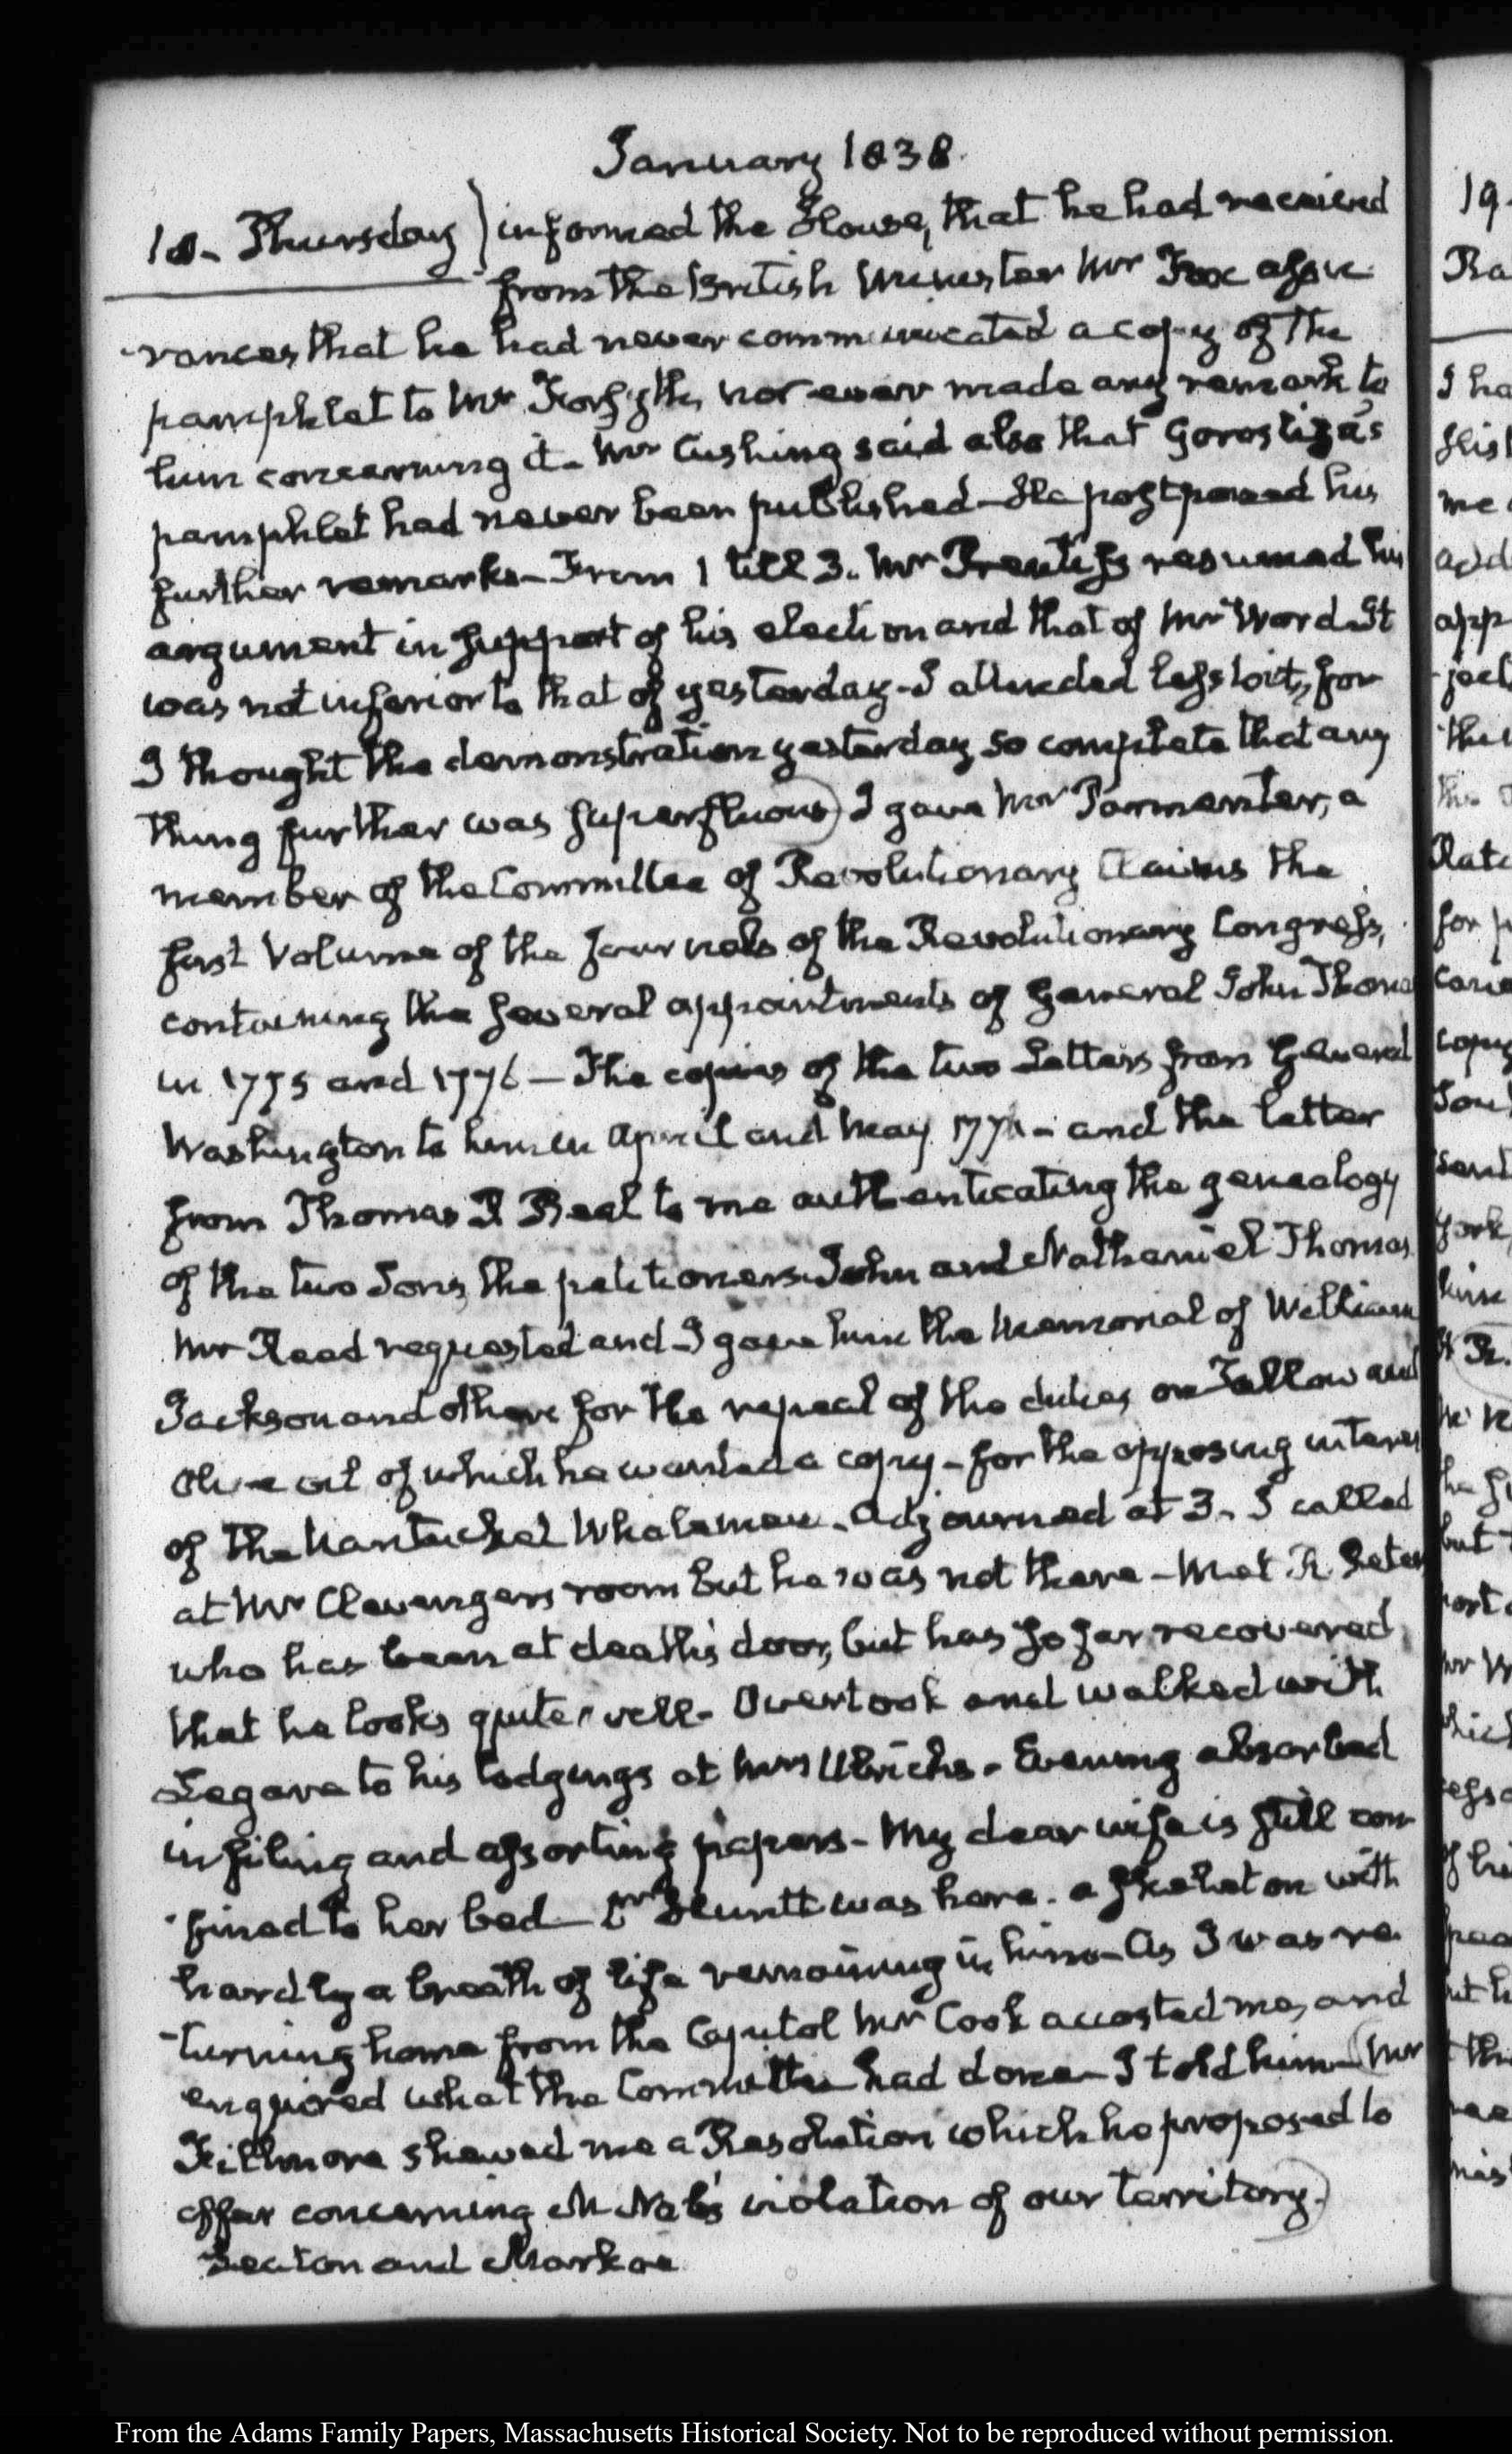 January 1838.
18. Thursday } informed the House, that he had received
from the British Minister Mr Fox assu
-rances that he had never communicated a copy of the
pamphlet to Mr Forsyth, nor ever made any remark to
him concerning it. Mr Cushing said also that Gorostiza's
pamphlet had never been published—He postponed his
further remarks—From 1 till 3. Mr Prentiss resumed his
argument in support of his election and that of Mr Word. It
was not inferior to that of yesterday—I attended less to it, for
I thought the demonstration yesterday so complete that any
thing further was superfluous) I gave Mr Parmenter, a
member of the Committee of Revolutionary Claims the
first Volume of the Journals of the Revolutionary Congress,
containing the several appointments of General John Thomas
in 1775 and 1776—The copies of the two Letters from General
Washington to him in April and May 1776—and the letter
from Thomas P Beal to me authenticating the genealogy
of the two Sons, the petitioners John and Nathaniel Thomas
Mr Reed requested and I gave him the Memorial of William
Jackson and others for the repeal of the duties on Tallow and
Olive oil of which he wanted a copy—for the opposing interest
of the Nantucket Whalemen. Adjourned at 3. I called
at Mr Clevengers room but he was not there—Met R
who has been at death's door, but has so far recovered
that he looks quite well—Overtook and walked with
Legare to his lodgings at Mrs Ulrichs. Evening absorbed
in filing and assorting papers—My dear wife is still con
-fined to her bed—Dr Huntt was here. a skeleton with
hardly a breath of life remaining in him—As I was re
-turning home from the Capitol Mr Cook accosted me, and
enquired what the Committee had done—I told him—(Mr
Fillmore shewed me a Resolution which he proposed to
offer concerning McNab's violation of our territory.)
Seaton and Markoe
19.
From the Adams Family Papers, Massachusetts Historical Society. Not to be reproduced without permission.